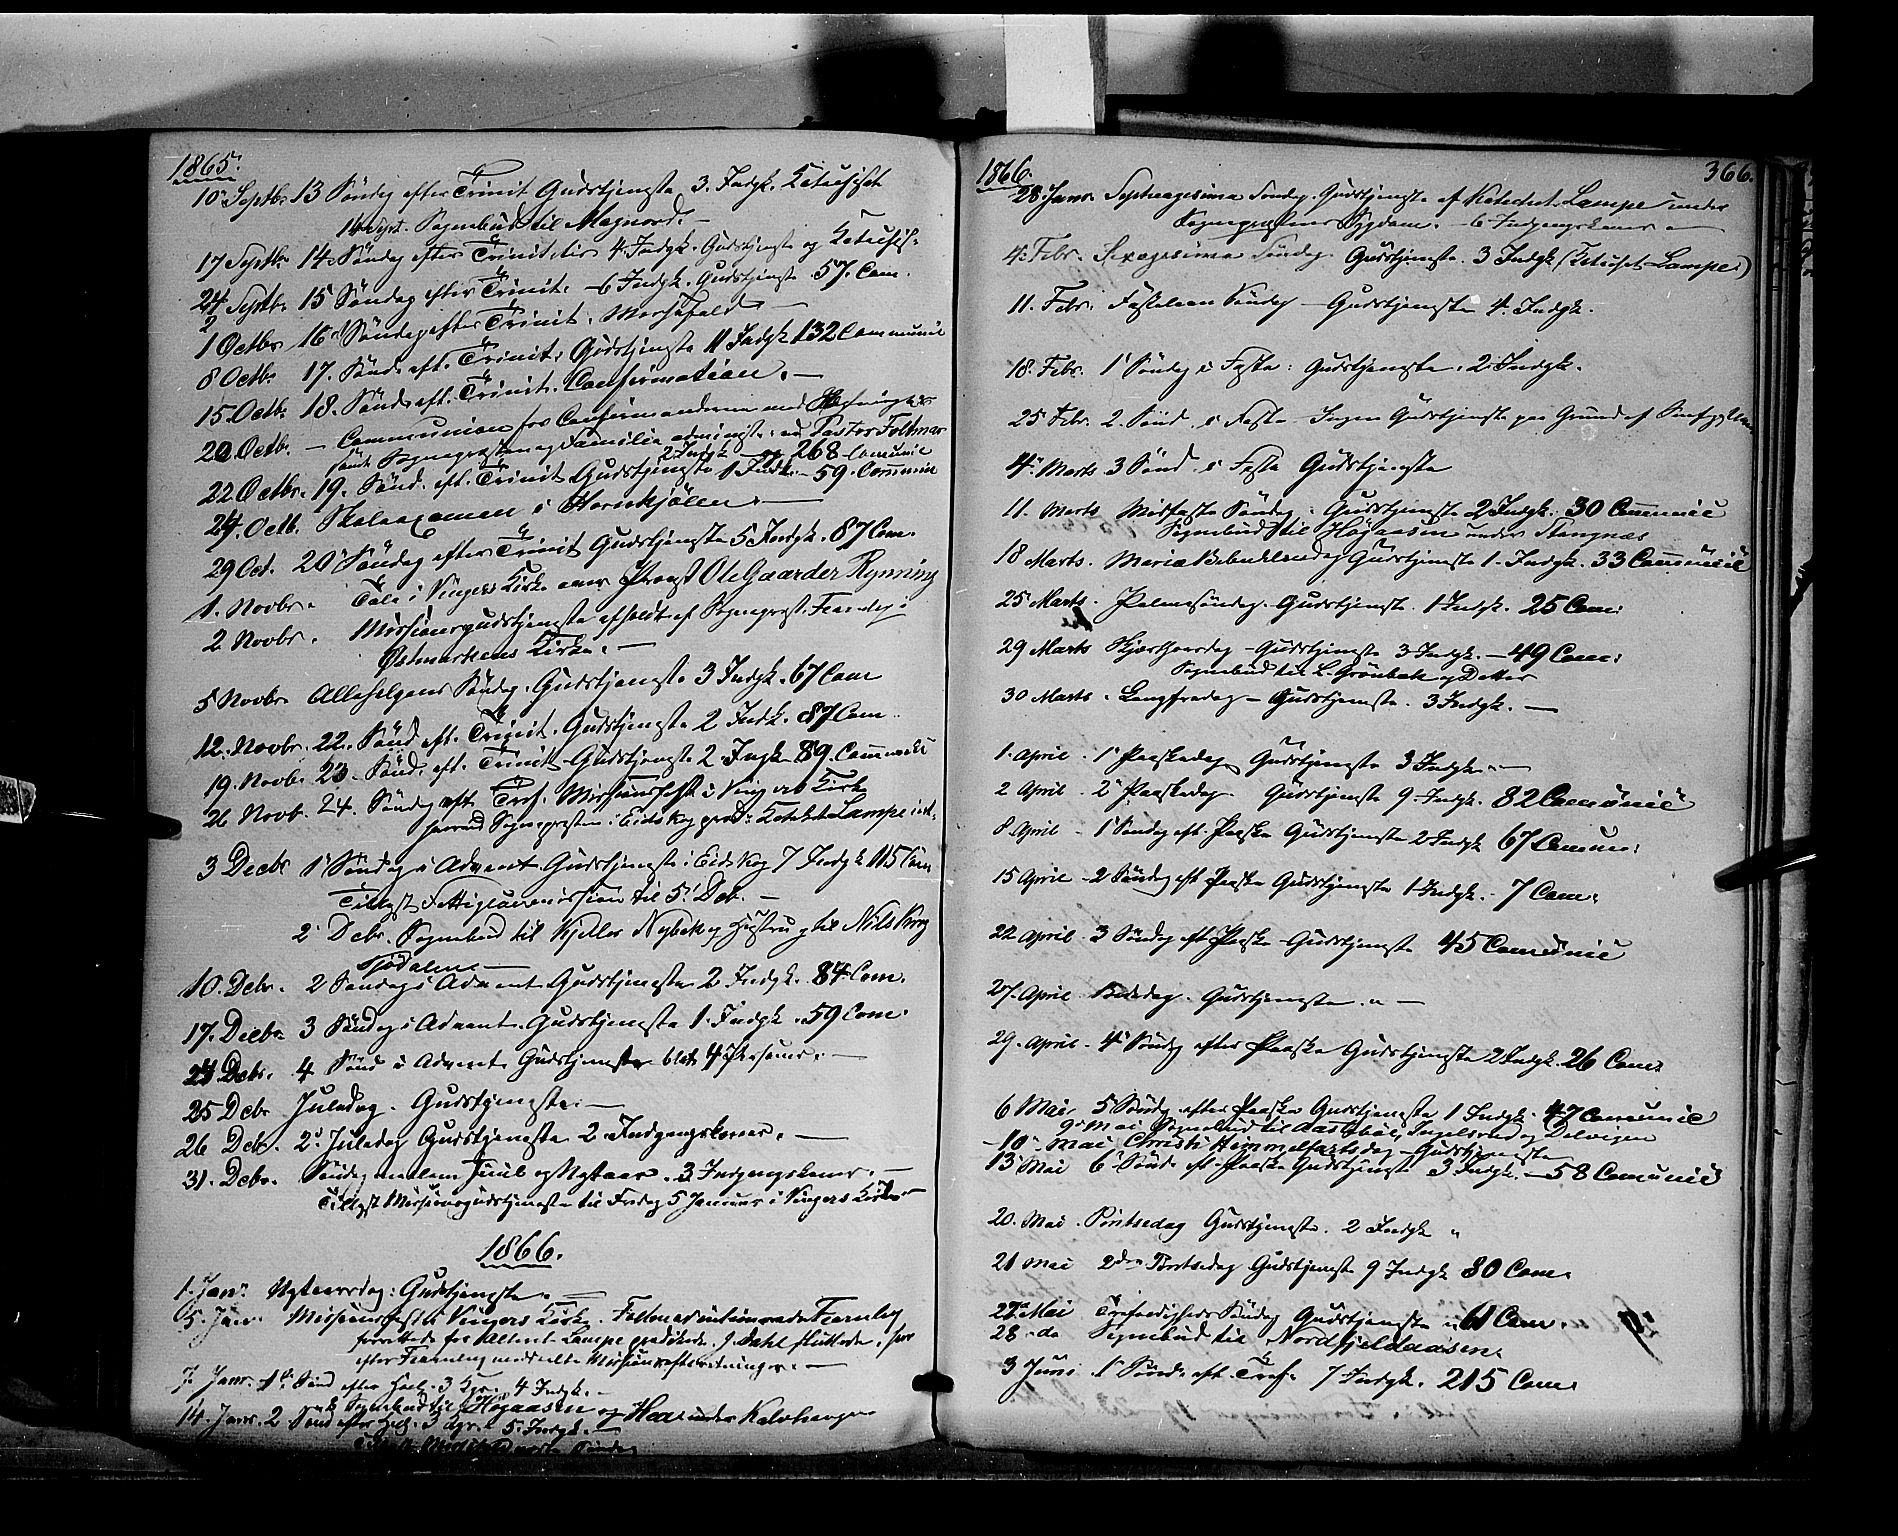 1865.
10 Septbr. 13 Søndag efter Trinit Gudstjeneste 3. Indgk. Katechiset
14 Sept. Sognebud til Magnord. –
17 Septbr. 14 Søndag efter Trinitatis 4 Indgk. Gudstjeneste og Katechis-
24 Septbr. 15 Søndag efter Trinit. – 6 Indgk. Gudstjeneste 57. Com.
1 Octbr. 16 Søndag efter Trinit. Messefald –
8 Octbr. 17. Sønd. eft. Trinit. Gudstjeneste 11 Indgk 132 Communic
15 Octb. 18. Sønd. eft. Trinit. Confirmation. –
20 Octb. – Communion for Confirmanderne med
samt Sognepræsten og Familie administr. ved Pastor Foltmar
2 Indgk og 268 Comunic
22 Octbr. 19. Sønd. eft. Trinit Gudstjeneste 1 Indk. – 59. Commun
27. Octb. Skoleexamen i Hornkjølen. –
29 Oct. 20 Søndag efter Trinit Gudstjeneste 5 Indgk. 87 Com.
1. Novbr. Tale i Vingers Kirke over Provst Ole Gaarder Rynning
2 Novbr. Missionsgudstjeneste afholdt af Sognepræst Fearnley i
Østmarkens Kirke. –
5 Novbr. Allehelgens Søndag. Gudstjeneste 3 Indgk. 67 Com
12. Novbr. 22. Sønd eft. Trinit. Gudstjeneste 2 Indk. 87 Com
19. Novb. 23. Sønd. eft. Trinit Gudstjeneste 2 Ingk 89. Communic
26 Novb. 24. Søndag eft. Tref. Missionsfest i Vingers Kirke
hvorved Sognepræsten i Eidskog præd: Katechet Lampe
3 Decbr 1 Søndag i Advent Gudstjeneste i Eidskog 7 Indgk 115 Com
Tillyst Fattigcommission til 5. Deb. –
2 Debr. Sognebud til Kjeller Nybek og Hustru og til Nils Krog
Tjødalen –
10. Debr. 2 Søndag i Advent Gudstjeneste 2 Indgk. 84 Com.
17. Decbr. 3 Søndag i Advent. Gudstjeneste 1. Indgk. 59 Com.
24 Debr. 4 Sønd i Advent Gudstjeneste blot 4 Personer. –
25 Debr Juledag. Gudstjeneste. –
26 Deb. 2. Juledag Gudstjeneste 2 Indgangskoner. –
31. Debr. Søndag mellem Juul og Nytaar. 3 Indgangskoner. –
Tillyst Missionsgudstjeneste til Fredag 5 Januar i Vingers Kirke. –
1866.
1. Jan. Nytaarsdag: Gudstjeneste. –
5. Jan. Missionsfest i Vingers Kirke. Foltmar intimerede Fearnley
forrettede for Alteret Lampe prædikede. J. Dahl sluttede, hvor
efter Fearnley meddelte Missionsefterretninger. –
7. Janr. 1ste Sønd efter Hell. 3 Kgr. 4 Indgk. –
Sognebud til Høgaasen og Hea under Kalvhaugen
14. Janr. 2 Sønd efter Hell. 3 Kgr. 5 Indgk. –
1866. 366.
28. Janr. Septuagesima Sondag. Gudstjeneste af Katechet Lampe under
Sognepræstens Sygdom. – 6 Indgangskoner –
4. Febr. Sexagesima Søndag Gudstjeneste. 3 Indgk (Katechet Lampe)
11. Febr. Fastelavn Søndag – Gudstjeneste 4. Indgk.
18. Febr. 1 Søndag i Faste: Gudstjeneste. 2 Indgk.
25 Febr. 2. Sønd. i Faste. Ingen Gudstjeneste paa Grund af
4. Marts 3 Sønd i Faste Gudstjeneste
11. Marts Midfaste Søndag. Gudstjeneste 2 Indgk. 30 Communic
Sognebud til Høgaasen under Stangnæs
18 Marts. Mariæ Bebudelsedag Gudstjeneste 1. Indgk. 33 Communic
25 Marts. Palmesøndag. Gudstjeneste. 1 Indgk. 25 Com:
29 Marts Skjærthorsdag – Gudstjeneste 3 Indgk. – 49 Com:
Sognebud til L. Grønbek og Datter
30 Marts. Langfredag – Gudstjeneste. 3 Indgk. –
1. April. 1 Paaskedag Gudstjeneste 3 Indgk. –
2 April. 2 Paaskedag. Gudstjeneste 9. Indgk. 82 Comunic
8 April – 1 Søndag eft. Paaske Gudstjeneste 2 Indgk 67 Comun:
15 April – 2 Søndag eft Paaske Gudstjeneste 1 Indgk. 7 Com:
22 April. 3 Søndag eft Paaske – Gudstjeneste 45 Comunic
27. April. Bededag. Gudstjeneste. –
29. April. 4 Søndag efter Paaske Gudstjeneste 2 Indgk. 26 Com:
6 Mai. 5 Søndag efter Paaske Gudstjeneste 1 Indgk. 47 Comunic
9 Mai Sognebud til Aastebøl, Ingelsrud og Delvigen
10. Mai Christi Himmelfartsdag – Gudstjeneste
13 Mai 6 Sønd. eft. Paaske Gudstjeneste 3 Indgk. – 58 Comunic
20. Mai. Pintsedag Gudstjeneste. 2 Indgk
21 Mai 2den Pintsedag Gudstjeneste 9 Indgk 80 Com.
27 Mai Trefoldigheds Søndag Gudstjeneste 61 Com.
28 – do Sognebud til Nordfjeldaasen.
3 Juni 1 Sønd. eft. Tref. 7 Indgk. 215 Com.